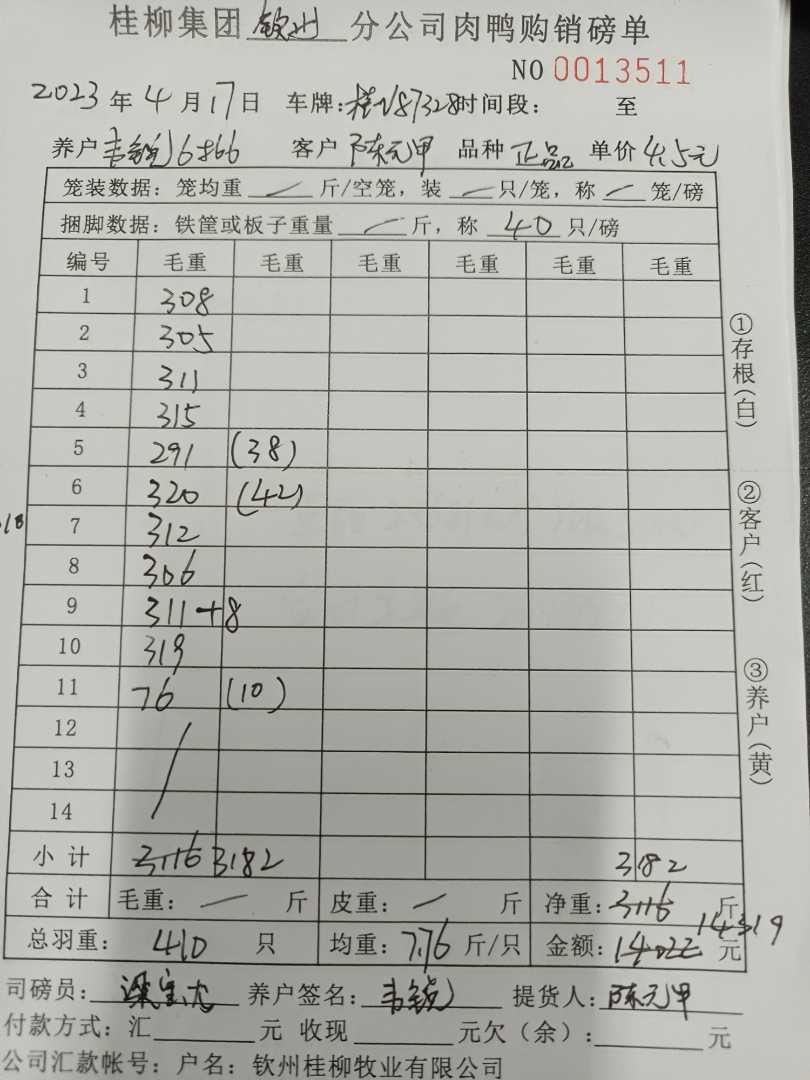 桂柳集团 钦州 分公司肉鸭购销磅单
NO 0013511
2023 年 4 月 17 日 车牌: 桂N87328 时间段: 至
养户 韦锐 客户 陈元甲 品种 正品 单价 4.5元
笼装数据: 笼均重 / 斤/空笼, 装 / 只/笼, 称 / 笼/磅
捆脚数据: 铁筐或板子重量 / 斤, 称 40 只/磅
编号 毛重 毛重 毛重 毛重 毛重 毛重
1 308
2 305
3 311
4 315
5 291 (38)
6 320 (42)
7 312
8 306
9 311+8
10 319
11 76 (10)
12
13
14
小计 3116 3182 3182
合计 毛重: / 斤 皮重: / 斤 净重: 3116 斤
14319
总羽重: 410 只 均重: 7.76 斤/只 金额: 14022 元
司磅员: 梁宝 养户签名: 韦锐 提货人: 陈元甲
付款方式: 汇 元 收现 元欠(余): 元
公司汇款帐号: 户名: 钦州桂柳牧业有限公司
①存根(白)
②客户(红)
③养户(黄)